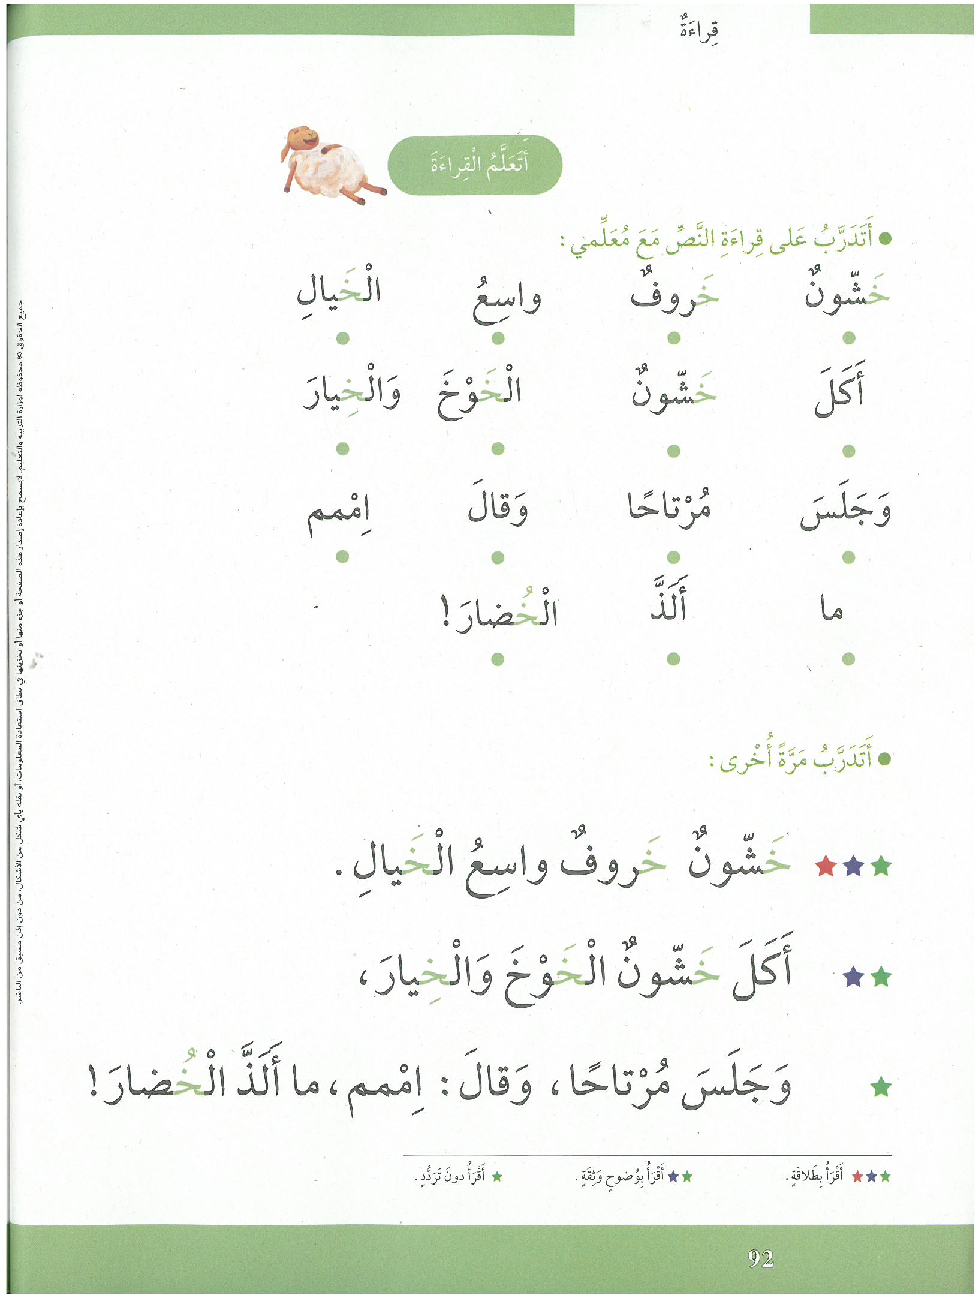 قِراءَةٌ
أَتَعَلَّمُ الْقِراءَةَ
● أَتَدَرَّبُ عَلى قِراءَةِ النَّصِّ مَعَ مُعَلِّمي :
خَشّونٌ خَروفٌ واسِعُ الْخَيالِ
أَكَلَ خَشّونٌ الْخَوْخَ وَالْخِيارَ
وَجَلَسَ مُرْتاحًا وَقالَ اِمْمم
ما أَلَذَّ الْخُضارَ!
● أَتَدَرَّبُ مَرَّةً أُخْرى :
★★★ خَشّونٌ خَروفٌ واسِعُ الْخَيالِ .
★★ أَكَلَ خَشّونٌ الْخَوْخَ وَالْخِيارَ،
★ وَجَلَسَ مُرْتاحًا، وَقالَ: اِمْمم، ما أَلَذَّ الْخُضارَ!
★★★ أَقْرَأُ بِطَلاقَةٍ. ★★ أَقْرَأُ بِوُضوحٍ وَثِقَةٍ. ★ أَقْرَأُ دونَ تَرَدُّدٍ.
92
جميع الحقوق © محفوظة لوزارة التربية والتعليم. لا يسمح بإعادة إصدار هذه الصفحة أو جزء منها أو تخزينها في نطاق استعادة المعلومات، أو نقله بأي شكل من الأشكال، من دون إذن مسبق من الناشر.